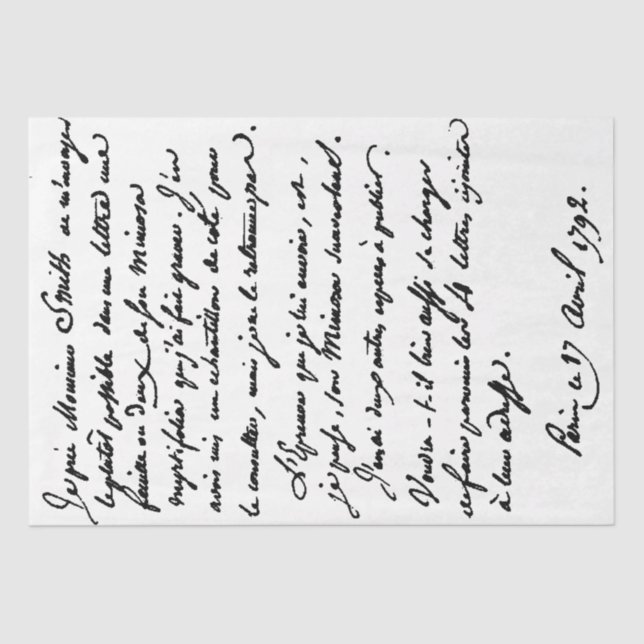 Je prie Monsieur Smith de m'envoyer
le plutôt possible dans une lettre une
feuille ou deux de son Mimosa
myrtifolia que j'ai fait graver. J'en
avois mis un échantillon de coté pour
le consulter, mais je ne le retrouve pas.
L'Epreuve que je lui envoie, est,
je pense, son Mimosa suaveolens.
J'en ai deux autres especes à publier.
Voudra-t-il bien aussi se charger
de faire parvenir les 4 lettres ci jointes
à leur adresse.
Paris le 17 Avril 1792.